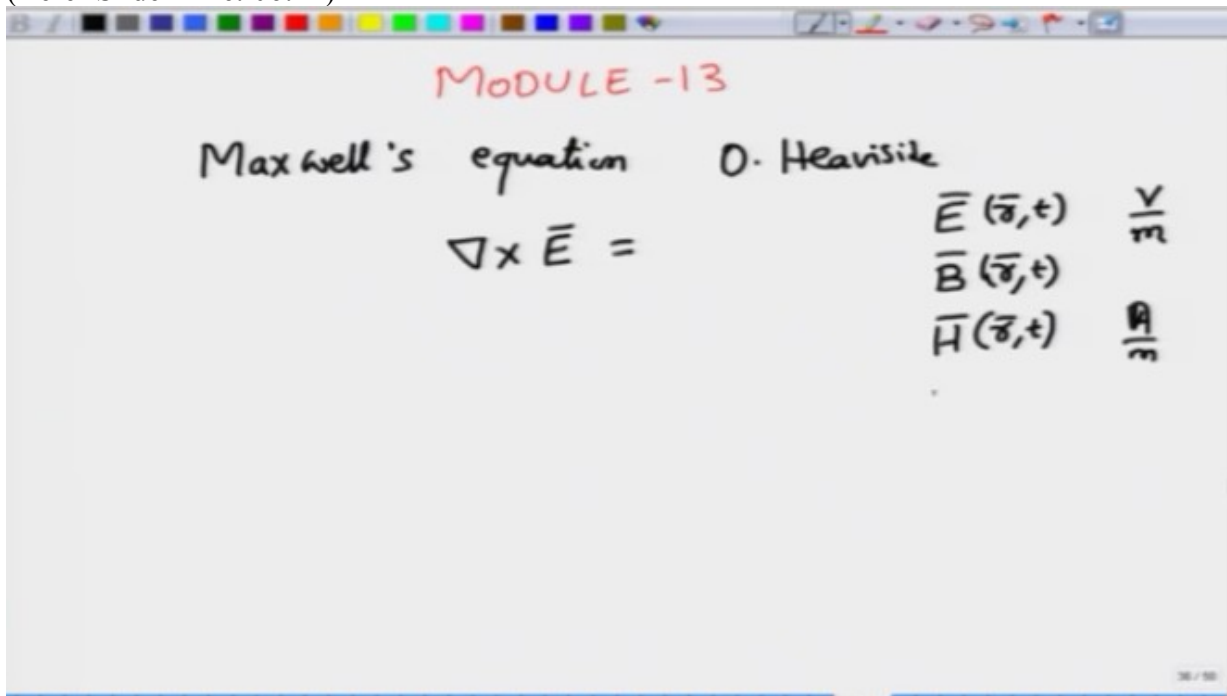 MODULE -13
Maxwell's equation O. Heaviside
∇ x E̅ =
E̅ (r̅,t) V/m
B̅ (r̅,t)
H̅ (r̅,t) A/m
38 / 50